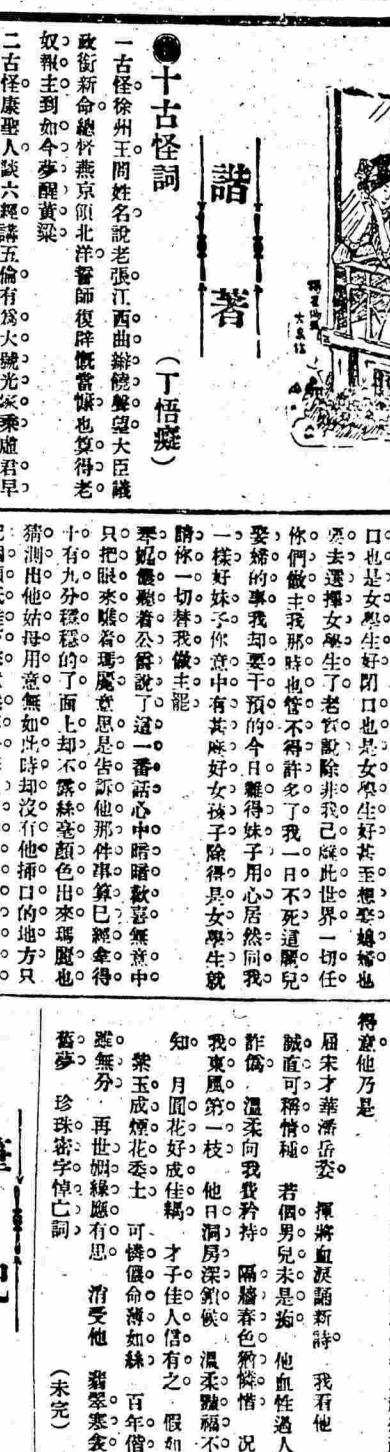 諧著
十古怪詞
(丁悟癡)
一古怪徐州王問姓名說老張江西曲辮饒聲望大臣議
政銜新命總督燕京領北洋誓師復辟慨當慷也算得老
奴報主到如今夢醒黃粱
二古怪康聖人談六經講五倫有為大號光家乘虛君早
口也是女學生好閉口也是女學生好甚至想娶媳婦也
要去選擇女學生了老實說除非我已離此世界一切任
你們做主我那時也管不得許多了我一日不死這關兒
娶婦的事我却要干預的今日難得妹子用心居然同我
一樣好妹子你意中有甚麼好女孩子除得是女學生就
請你一切替我做主罷
琴妮儂聽着公爵說了這一番話心中暗暗歡喜無意中
只把眼來瞧着瑪麗意思是告訴他那件事算已經拿得
十有九分穩穩的了面上却不露絲毫顏色出來瑪麗也
猜測出他姑母用意無如此時却沒有他插口的地方只
得意他乃是
屈宋才華潘岳姿 揮將血淚誦新詩 我看他
誠直可稱情種 若個男兒未是痴 他血性過人
詐偽 溫柔向我費矜持 隔牆春色猶憐惜 况
我東風第一枝 他日洞房深鎖候 溫柔豔福不
知 月圓花好成佳耦 才子佳人信有之 假如
紫玉成煙花委土 可憐儂命薄如絲 百年偕
雖無分 再世姻緣應有思 消受他 翡翠寒衾
舊夢 珍珠密字悼亡詞
(未完)